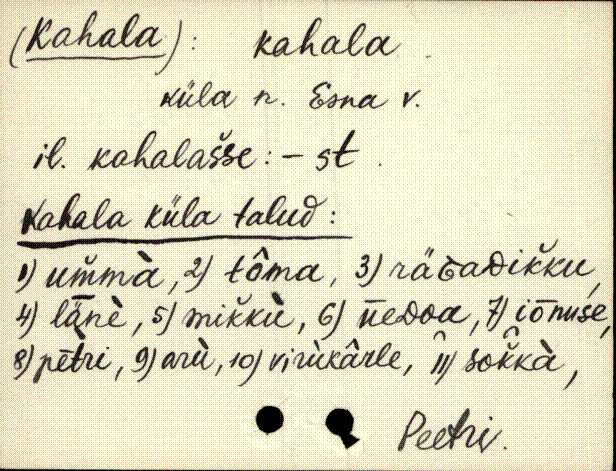 (Kahala): kahala
küla n. Esna v.
il. kahalašse: – st
Kahala küla talud:
1) um̆mà, 2) tôma, 3) räɢadik̆ku,
4) länè, 5) mik̆kù, 6) needoa, 7) iōnuśe,
8) pētri, 9) arù, 10) virùkârle, 11) sok̆kà,
Peetri.